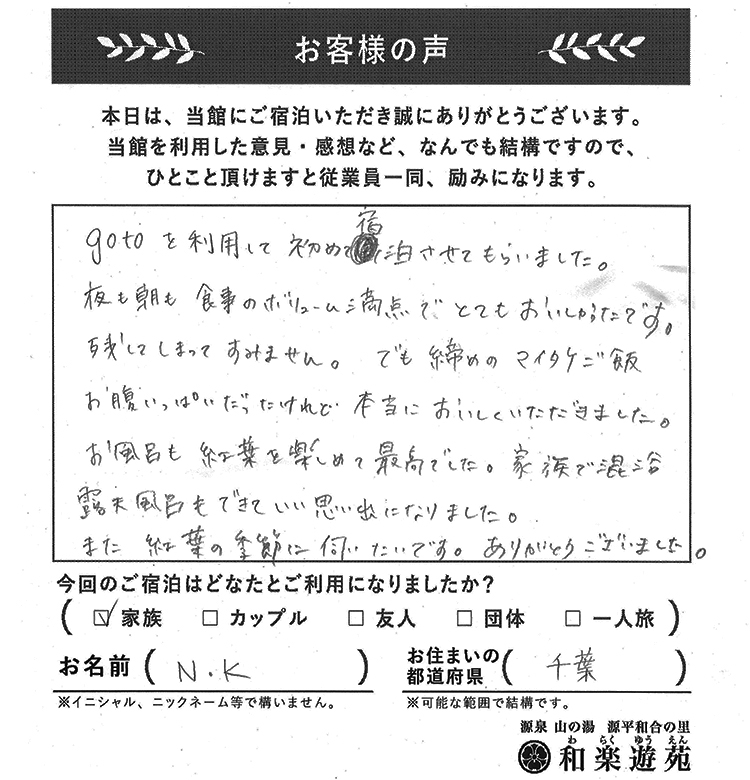 お客様の声
本日は、当館にご宿泊いただき誠にありがとうございます。
当館を利用した意見・感想など、なんでも結構ですので、
ひとこと頂けますと従業員一同、励みになります。
gotoを利用して 初めて宿泊させてもらいました。
夜も朝も 食事のボリューム満点で とてもおいしかったです。
残してしまって すみません。 でも 締めの マイタケご飯
お腹いっぱいだったけれど 本当に おいしくいただきました。
お風呂も 紅葉を楽しめて 最高でした。 家族で混浴
露天風呂もできて いい思い出になりました。
また 紅葉の季節に 伺いたいです。 ありがとうございました。
今回のご宿泊はどなたとご利用になりましたか?
( ☑ 家族 □ カップル □ 友人 □ 団体 □ 一人旅 )
お名前 ( N.K ) お住まいの都道府県 ( 千葉 )
※イニシャル、ニックネーム等で構いません。 ※可能な範囲で結構です。
源泉 山の湯 源平和合の里
わ らく ゆう えん
和楽遊苑